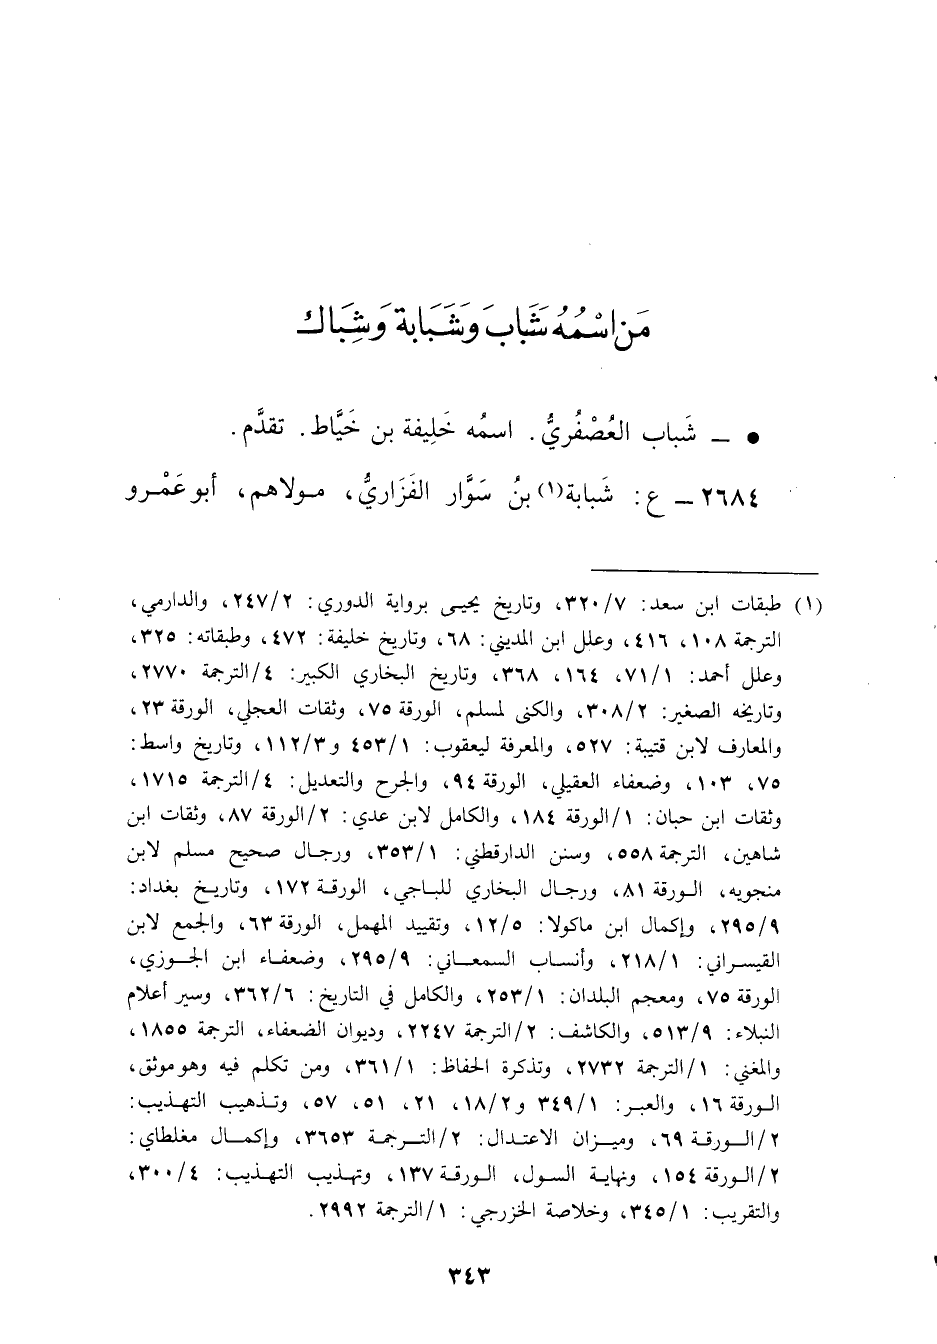 مَن اسْمُهُ شَبَابَ وَشَبَابَة وَشِبَاك
● ـ شَباب العُصْفُرِيُّ. اسمُه خَلِيفة بن خَيَّاط. تقدَّم.
٢٦٨٤ ـ ع: شَبابة(١) بنُ سَوَّار الفَزَاريُّ، مولاهم، أبو عَمْرو
(١) طبقات ابن سعد: ٣٢٠/٧، وتاريخ يحيى برواية الدوري: ٢٤٧/٢، والدارمي،
الترجمة ١٠٨، ٤١٦، وعلل ابن المديني: ٦٨، وتاريخ خليفة: ٤٧٢، وطبقاته: ٣٢٥،
وعلل أحمد: ٧١/١، ١٦٤، ٣٦٨، وتاريخ البخاري الكبير: ٤/الترجمة ٢٧٧٠،
وتاريخه الصغير: ٣٠٨/٢، والكنى لمسلم، الورقة ٧٥، وثقات العجلي، الورقة ٢٣،
والمعارف لابن قتيبة: ٥٢٧، والمعرفة ليعقوب: ٤٥٣/١ و١١٢/٣، وتاريخ واسط:
٧٥، ١٠٣، وضعفاء العقيلي، الورقة ٩٤، والجرح والتعديل: ٤/الترجمة ١٧١٥،
وثقات ابن حبان: ١/الورقة ١٨٤، والكامل لابن عدي: ٢/الورقة ٨٧، وثقات ابن
شاهين، الترجمة ٥٥٨، وسنن الدارقطني: ٣٥٣/١، ورجال صحيح مسلم لابن
منجويه، الورقة ٨١، ورجال البخاري للباجي، الورقة ١٧٢، وتاريخ بغداد:
٢٩٥/٩، وإكمال ابن ماكولا: ١٢/٥، وتقييد المهمل، الورقة ٦٣، والجمع لابن
القيسراني: ٢١٨/١، وأنساب السمعاني: ٢٩٥/٩، وضعفاء ابن الجوزي،
الورقة ٧٥، ومعجم البلدان: ٢٥٣/١، والكامل في التاريخ: ٣٦٢/٦، وسير أعلام
النبلاء: ٥١٣/٩، والكاشف: ٢/الترجمة ٢٢٤٧، وديوان الضعفاء، الترجمة ١٨٥٥،
والمغني: ١/الترجمة ٢٧٣٢، وتذكرة الحفاظ: ٣٦١/١، ومن تكلم فيه وهو موثق،
الورقة ١٦، والعبر: ٣٤٩/١ و١٨/٢، ٢١، ٥١، ٥٧، وتذهيب التهذيب:
٢/الورقة ٦٩، وميزان الاعتدال: ٢/الترجمة ٣٦٥٣، وإكمال مغلطاي:
٢/الورقة ١٥٤، ونهاية السول، الورقة ١٣٧، وتهذيب التهذيب: ٣٠٠/٤،
والتقريب: ٣٤٥/١، وخلاصة الخزرجي: ١/الترجمة ٢٩٩٢.
٣٤٣